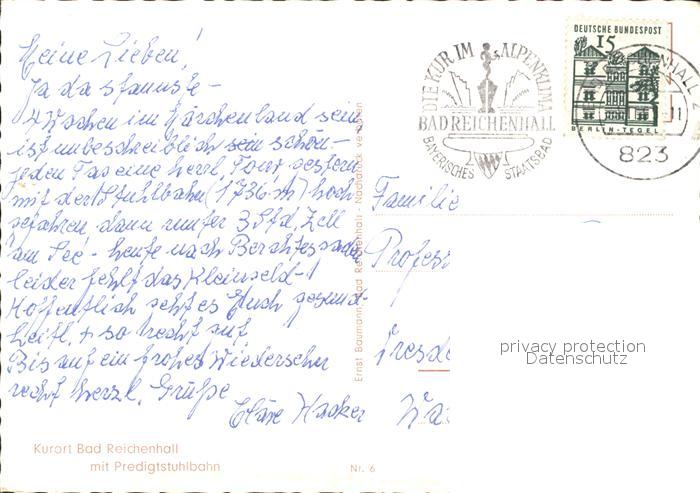 Meine Lieben!
Ja da staunste -
4 Wochen im Märchenland sein
ist unbeschreiblich sein schön -
jeden Tag eine herrl. Tour gestern
mit der Stuhlbahn (1736 m) hoch
gefahren dann runter 3 Std, Zell
am See - heute nach Berchtesgaden
leider fehlt das Kleingeld -!
Hoffentlich geht es Euch gesund-
heitl. + so recht gut
Bis auf ein frohes Wiedersehn
recht herzl. Grüße
DIE KUR IM ALPENKLIMA
BAD REICHENHALL
BAYERISCHES STAATSBAD
DEUTSCHE BUNDESPOST
15
BERLIN-TEGEL
823
Familie
Profess
Dresde
privacy protection
Datenschutz
Ernst Baumann, Bad Reichenhall - Nachdruck verboten
Kurort Bad Reichenhall
mit Predigtstuhlbahn
Nr. 6